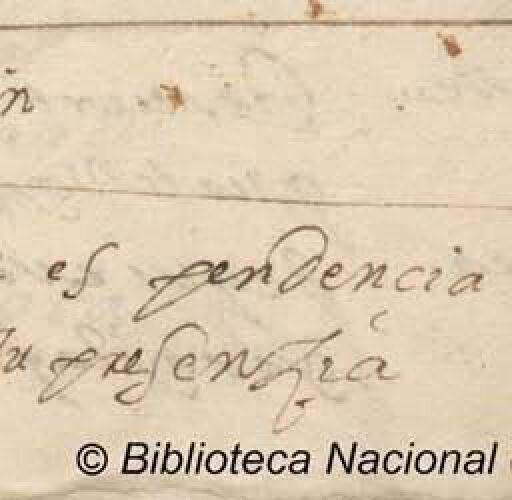 in
es pendencia
su presenzia
© Biblioteca Nacional